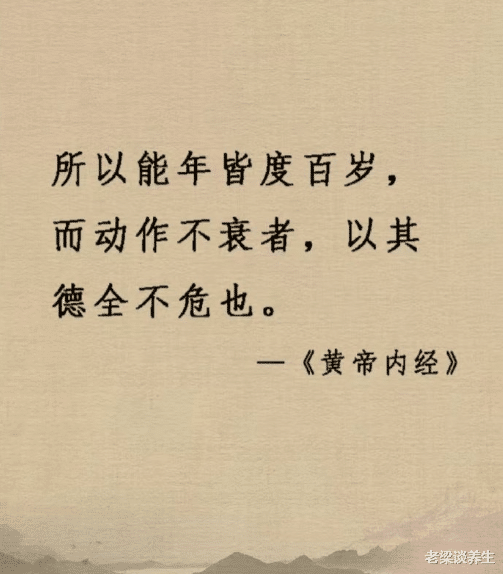 所以能年皆度百岁，
而动作不衰者，以其
德全不危也。
—《黄帝内经》
老梁谈养生